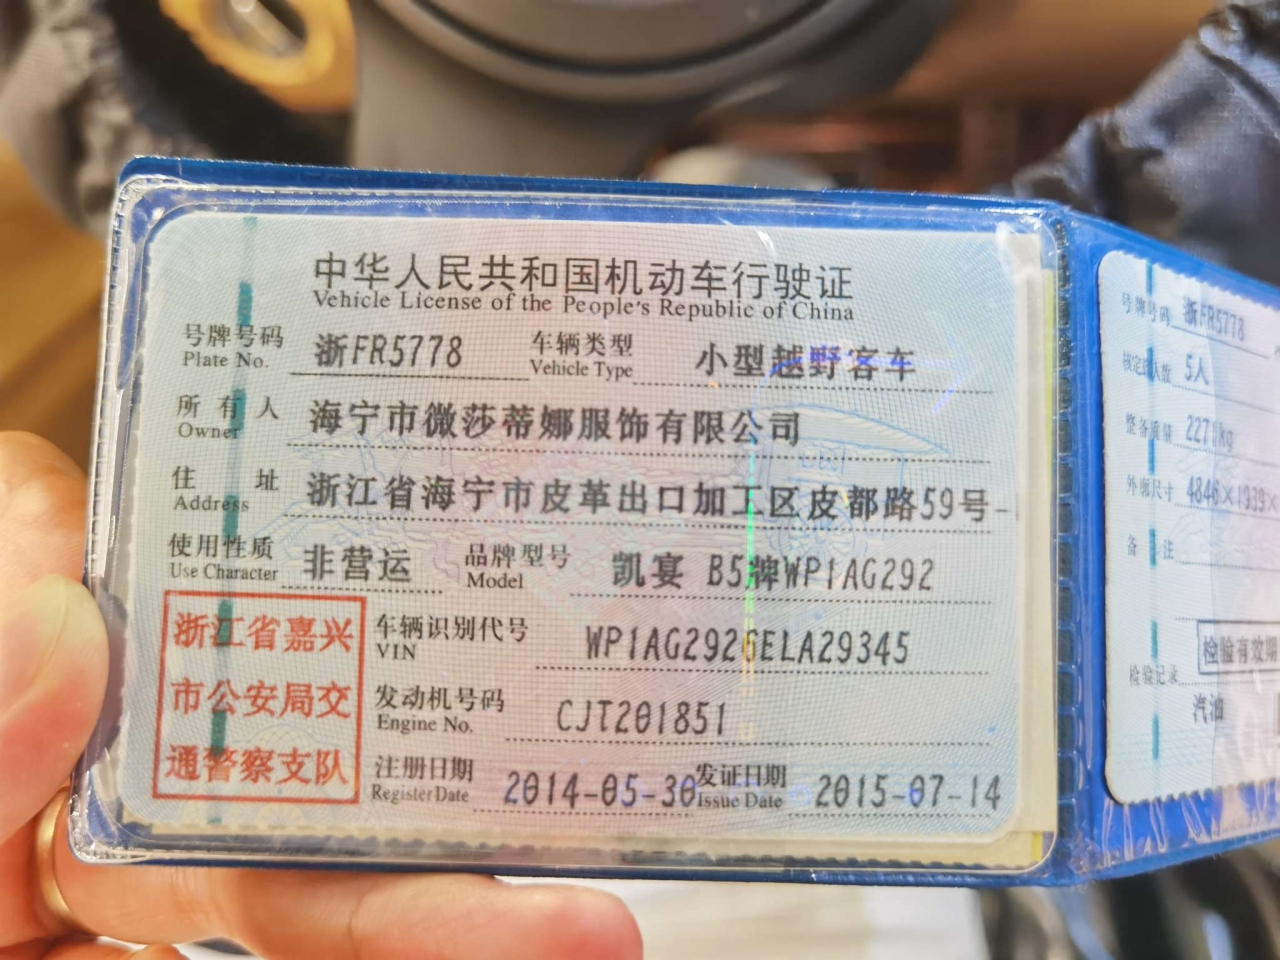 中华人民共和国机动车行驶证
Vehicle License of the People's Republic of China
号牌号码 浙FR5778 车辆类型 小型越野客车
Plate No. Vehicle Type
所有人 海宁市微莎蒂娜服饰有限公司
Owner
住址 浙江省海宁市皮革出口加工区皮都路59号-
Address
使用性质 非营运 品牌型号 凯宴 B5牌WP1AG292
Use Character Model
浙江省嘉兴
市公安局交
通警察支队
车辆识别代号 WP1AG2926ELA29345
VIN
发动机号码 CJT201851
Engine No.
注册日期 2014-05-30 发证日期 2015-07-14
Register Date Issue Date
号牌号码 浙FR5778
核定载人数 5人
整备质量 227 kg
外廓尺寸 4846×1939×
备注
检验有效期
检验记录
汽油